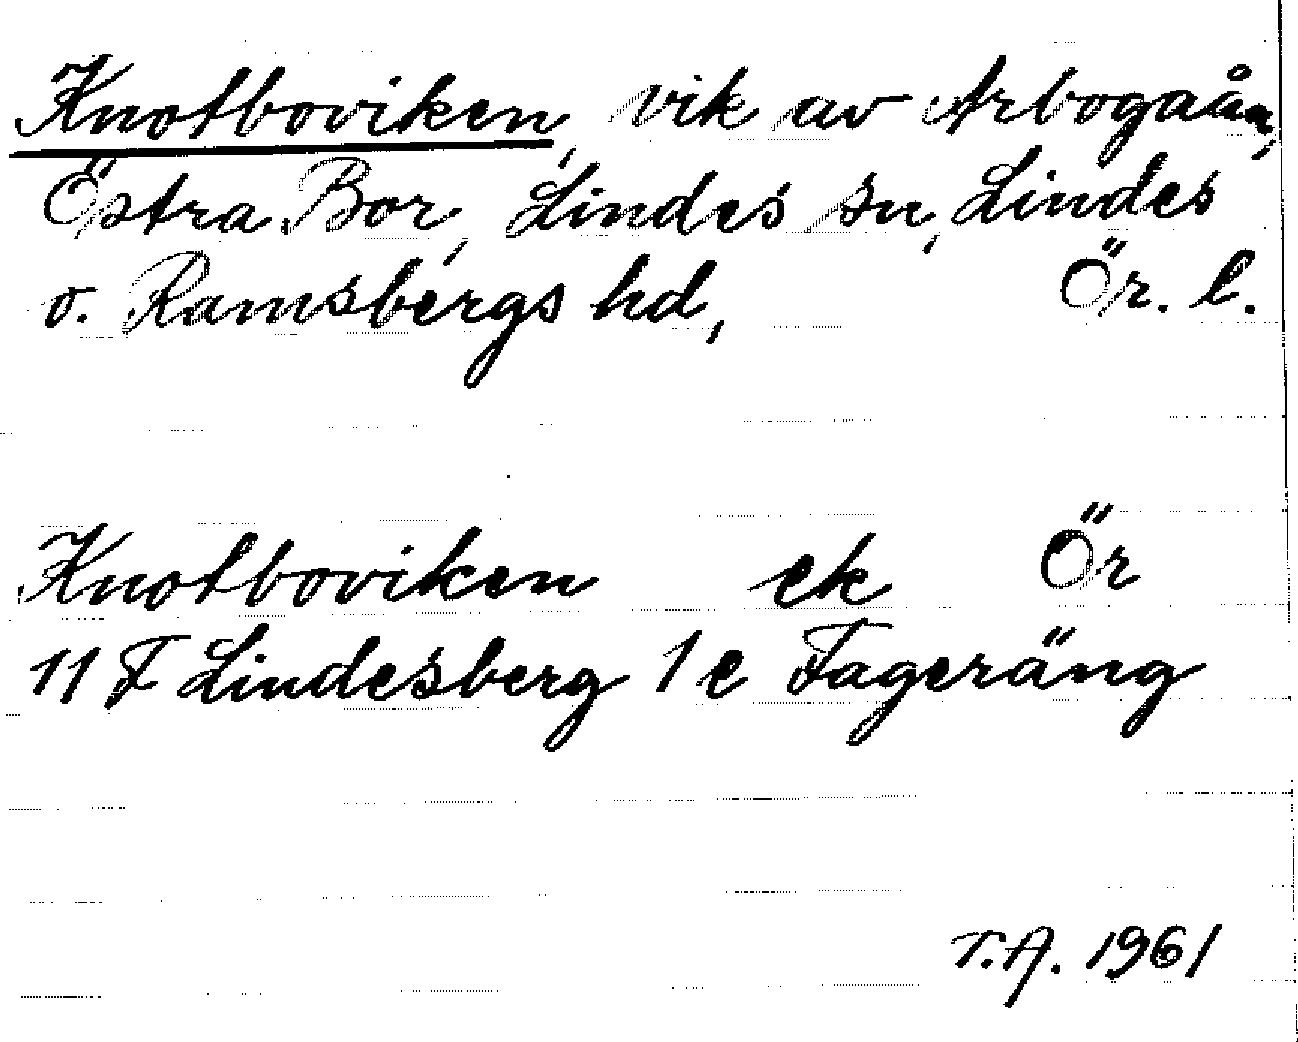 Knotboviken, vik av Arbogaån,
Östra Bor, Lindes sn, Lindes
o. Ramsbergs hd, Ör. l.
Knotboviken ek Ör
11 F Lindesberg 1 e Fageräng
T.A. 1961